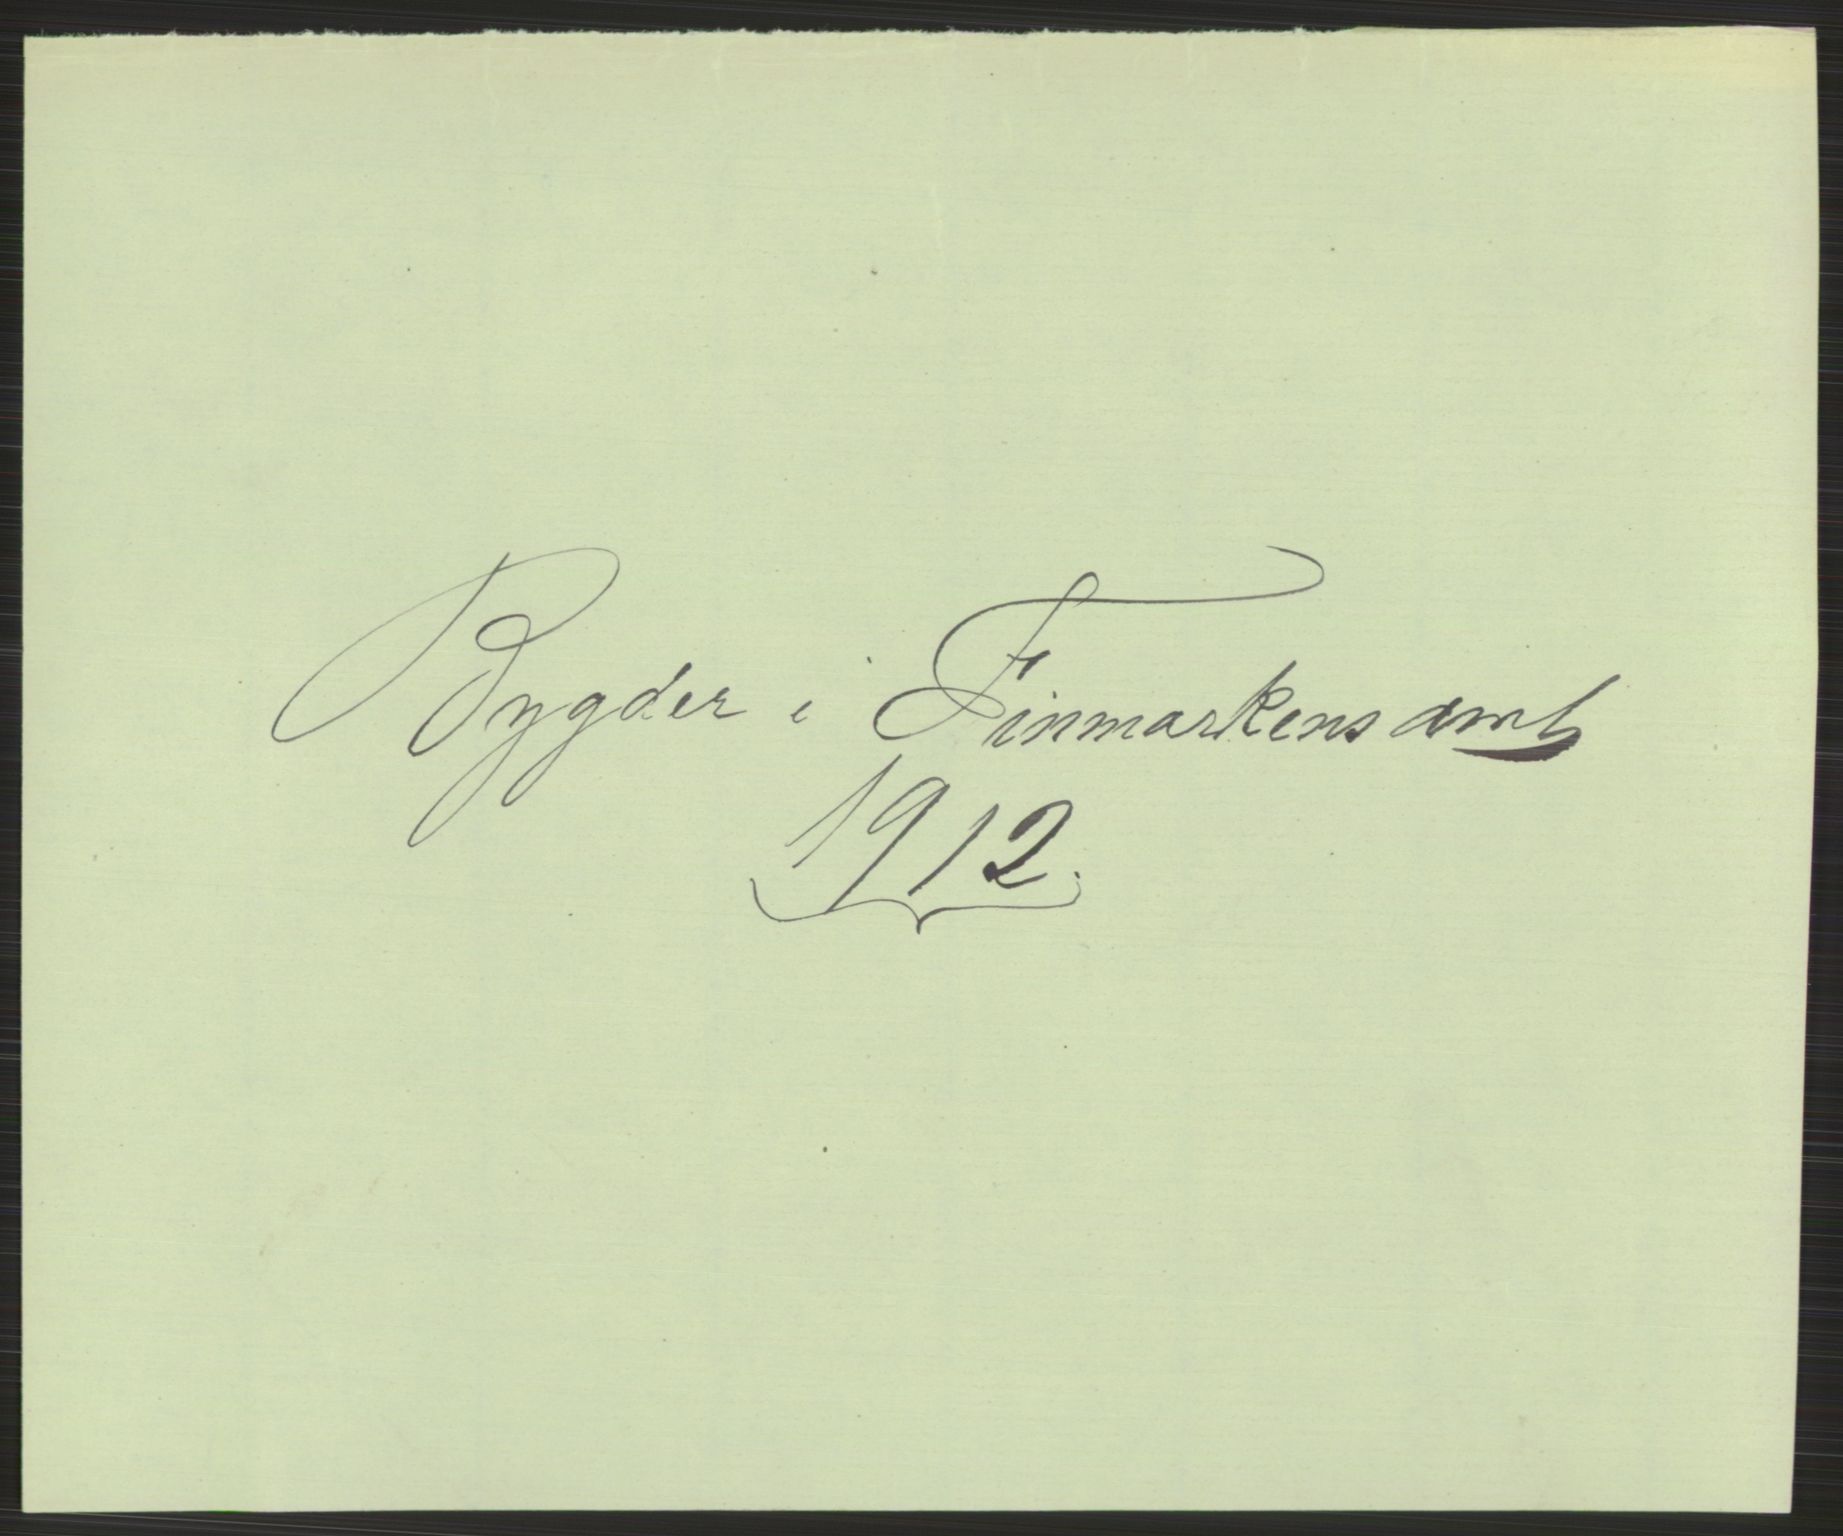 Bygder i Finmarkens amt
1912.